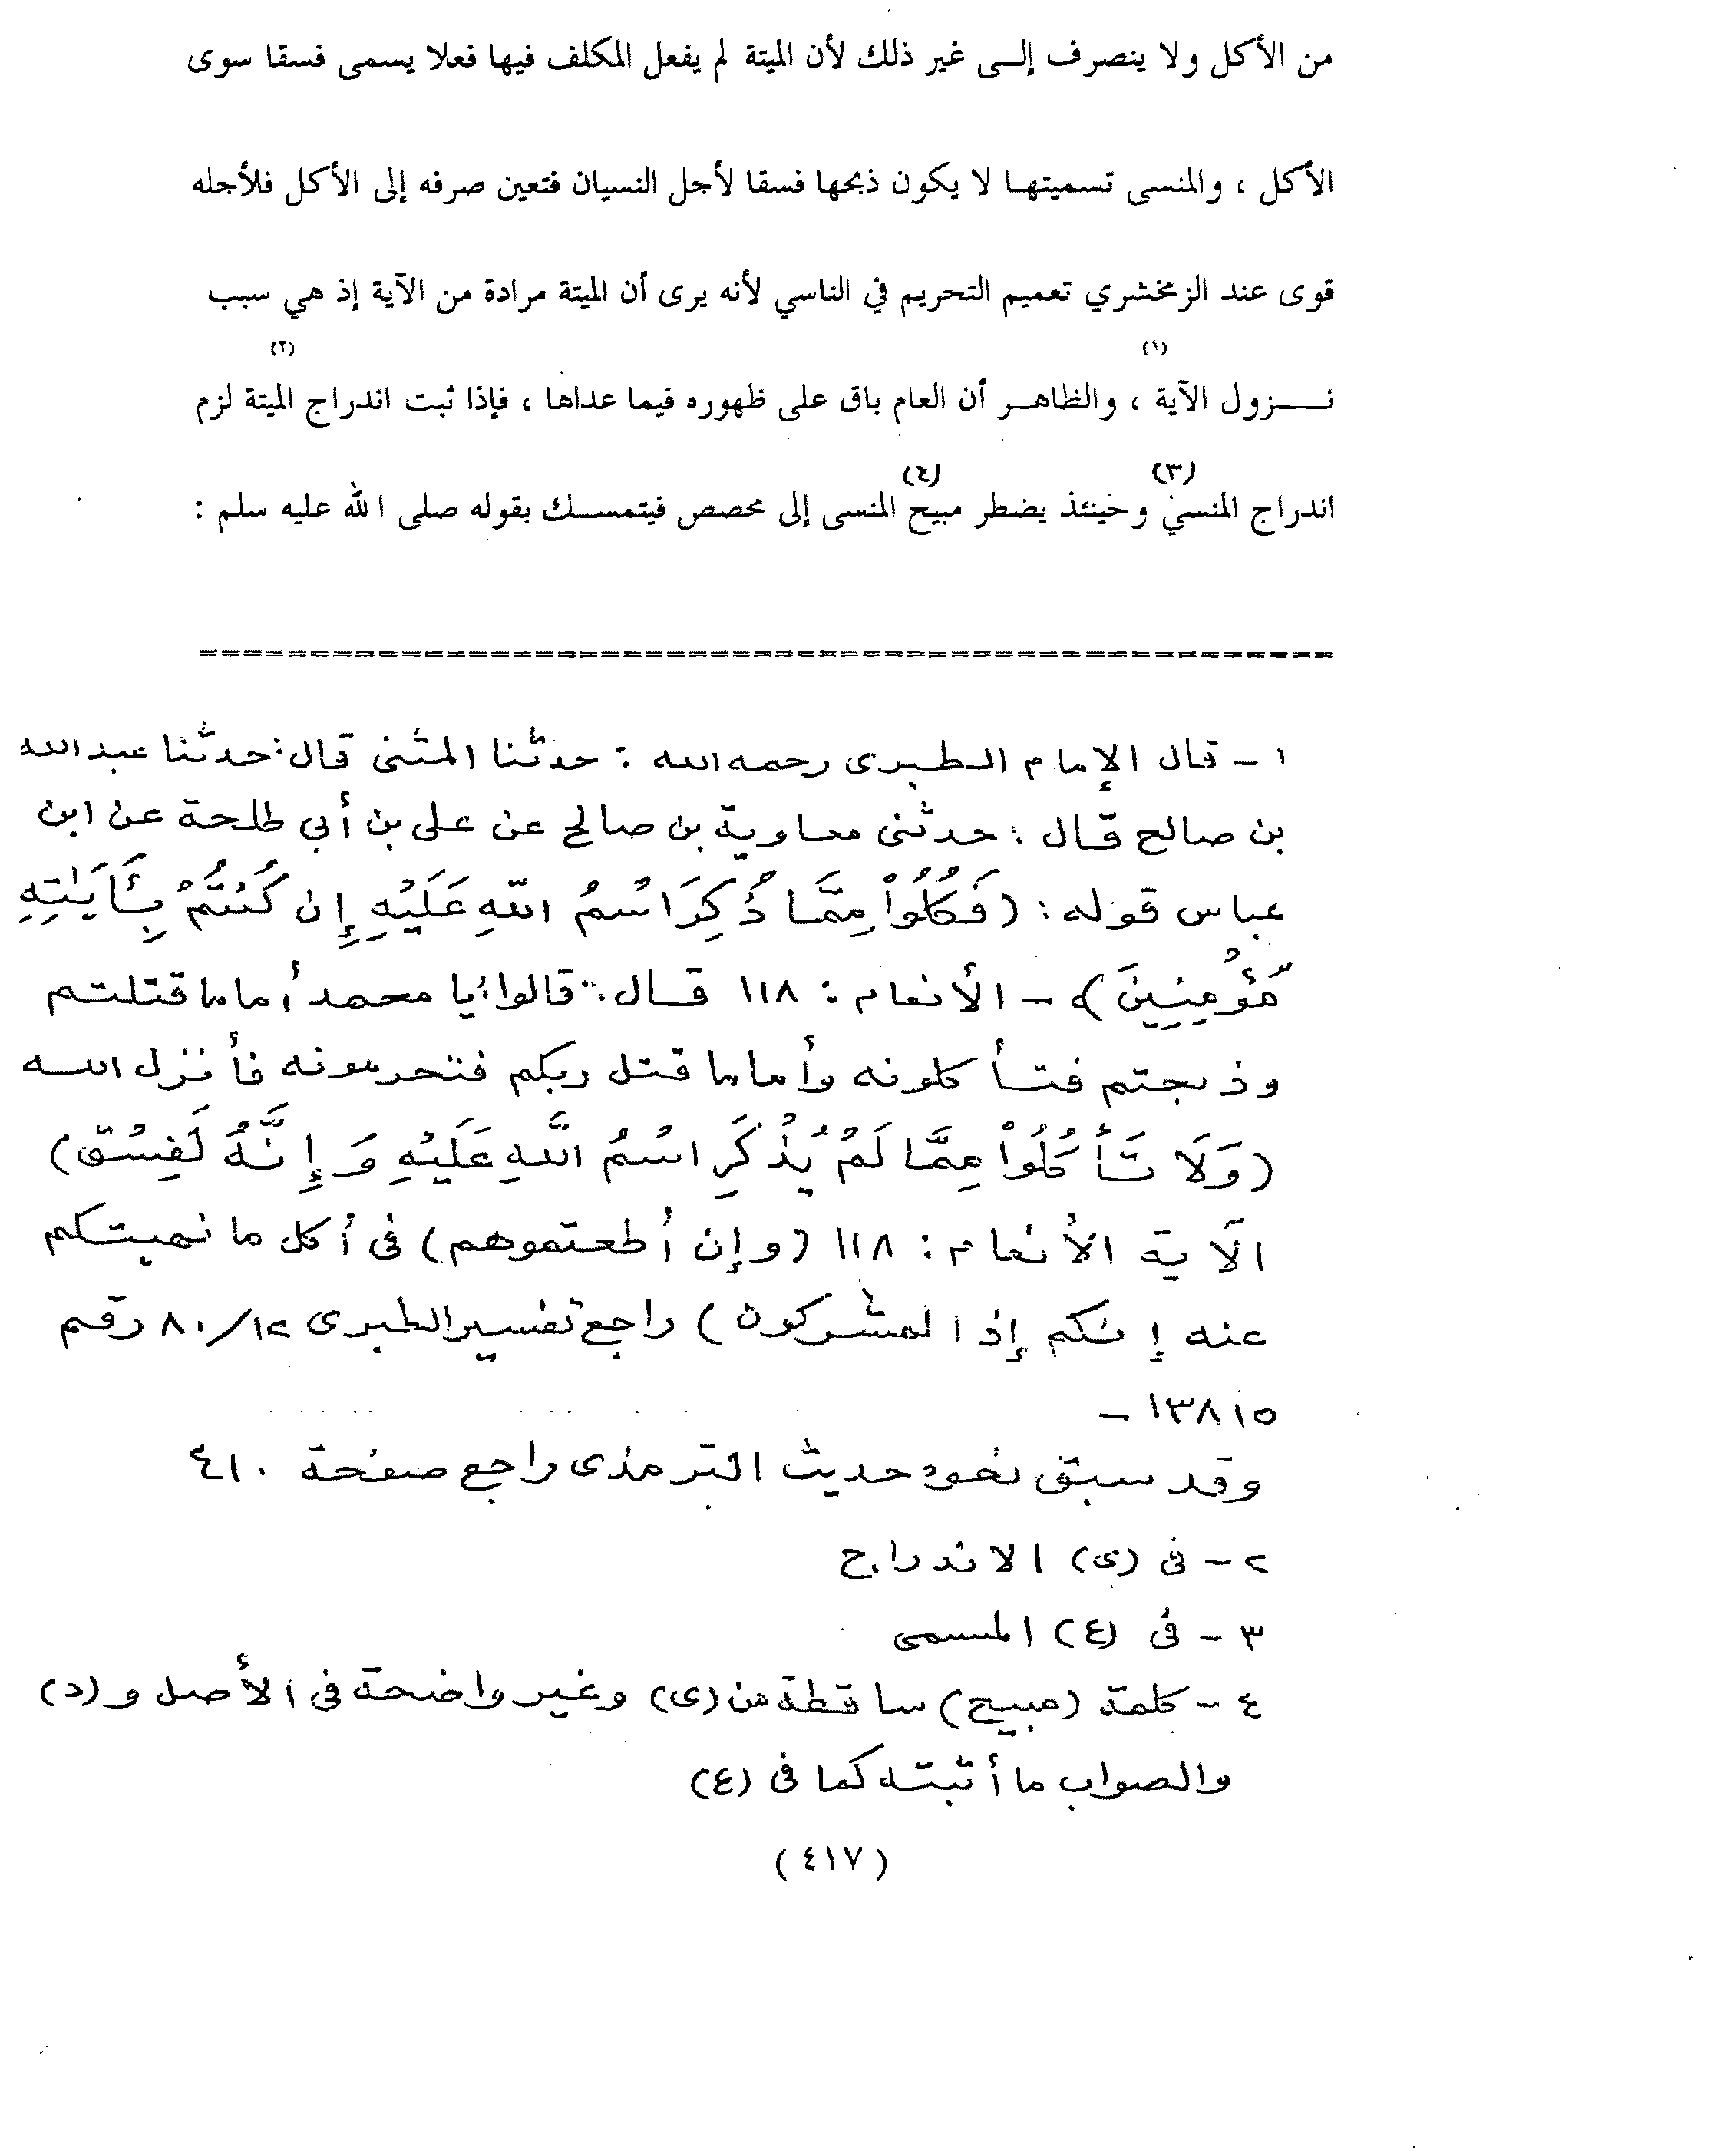 من الأكل ولا ينصرف إلى غير ذلك لأن الميتة لم يفعل المكلف فيها فعلا يسمى فسقا سوى
الأكل ، والمنسى تسميتها لا يكون ذبحها فسقا لأجل النسيان فتعين صرفه إلى الأكل فلأجله
قوى عند الزمخشري تعميم التحريم في الناسي لأنه يرى أن الميتة مرادة من الآية إذ هي سبب
(١) (٢)
نزول الآية ، والظاهر أن العام باق على ظهوره فيما عداها ، فإذا ثبت اندراج الميتة لزم
(٣) (٤)
اندراج المنسي وحينئذ يضطر مبيح المنسى إلى مخصص فيتمسك بقوله صلى الله عليه سلم :
١ - قال الإمام الطبرى رحمه الله : حدثنا المثنى قال : حدثنا عبد الله
بن صالح قال : حدثنى معاوية بن صالح عن على بن أبي طلحة عن ابن
عباس قوله : (فَكُلُوا۟ مِمَّا ذُكِرَ اسْمُ اللَّهِ عَلَيْهِ إِن كُنتُمْ بِـَٔايَـٰتِهِ
مُؤْمِنِينَ) - الأنعام : ١١٨ قال : قالوا : يا محمد أما ما قتلتم
وذبحتم فتأكلونه وأما ما قتل ربكم فتحرمونه فأنزل الله
(وَلَا تَأْكُلُوا۟ مِمَّا لَمْ يُذْكَرِ اسْمُ اللَّهِ عَلَيْهِ وَإِنَّهُ لَفِسْق)
الآية الأنعام : ١١٨ (وإن أطعتموهم) فى أكل ما نهيتكم
عنه إنكم إذا لمشركون) راجع تفسير الطبرى ١٢/٨٠ رقم
١٣٨١٥ -
وقد سبق نحوه حديث الترمذى راجع صفحة ٤١٠
٢ - فى (ى) الاندراج
٣ - فى (ع) المسمى
٤ - كلمة (مبيح) ساقطة من (ى) وغير واضحة فى الأصل و (د)
والصواب ما أثبته كما فى (ع)
(٤١٧)